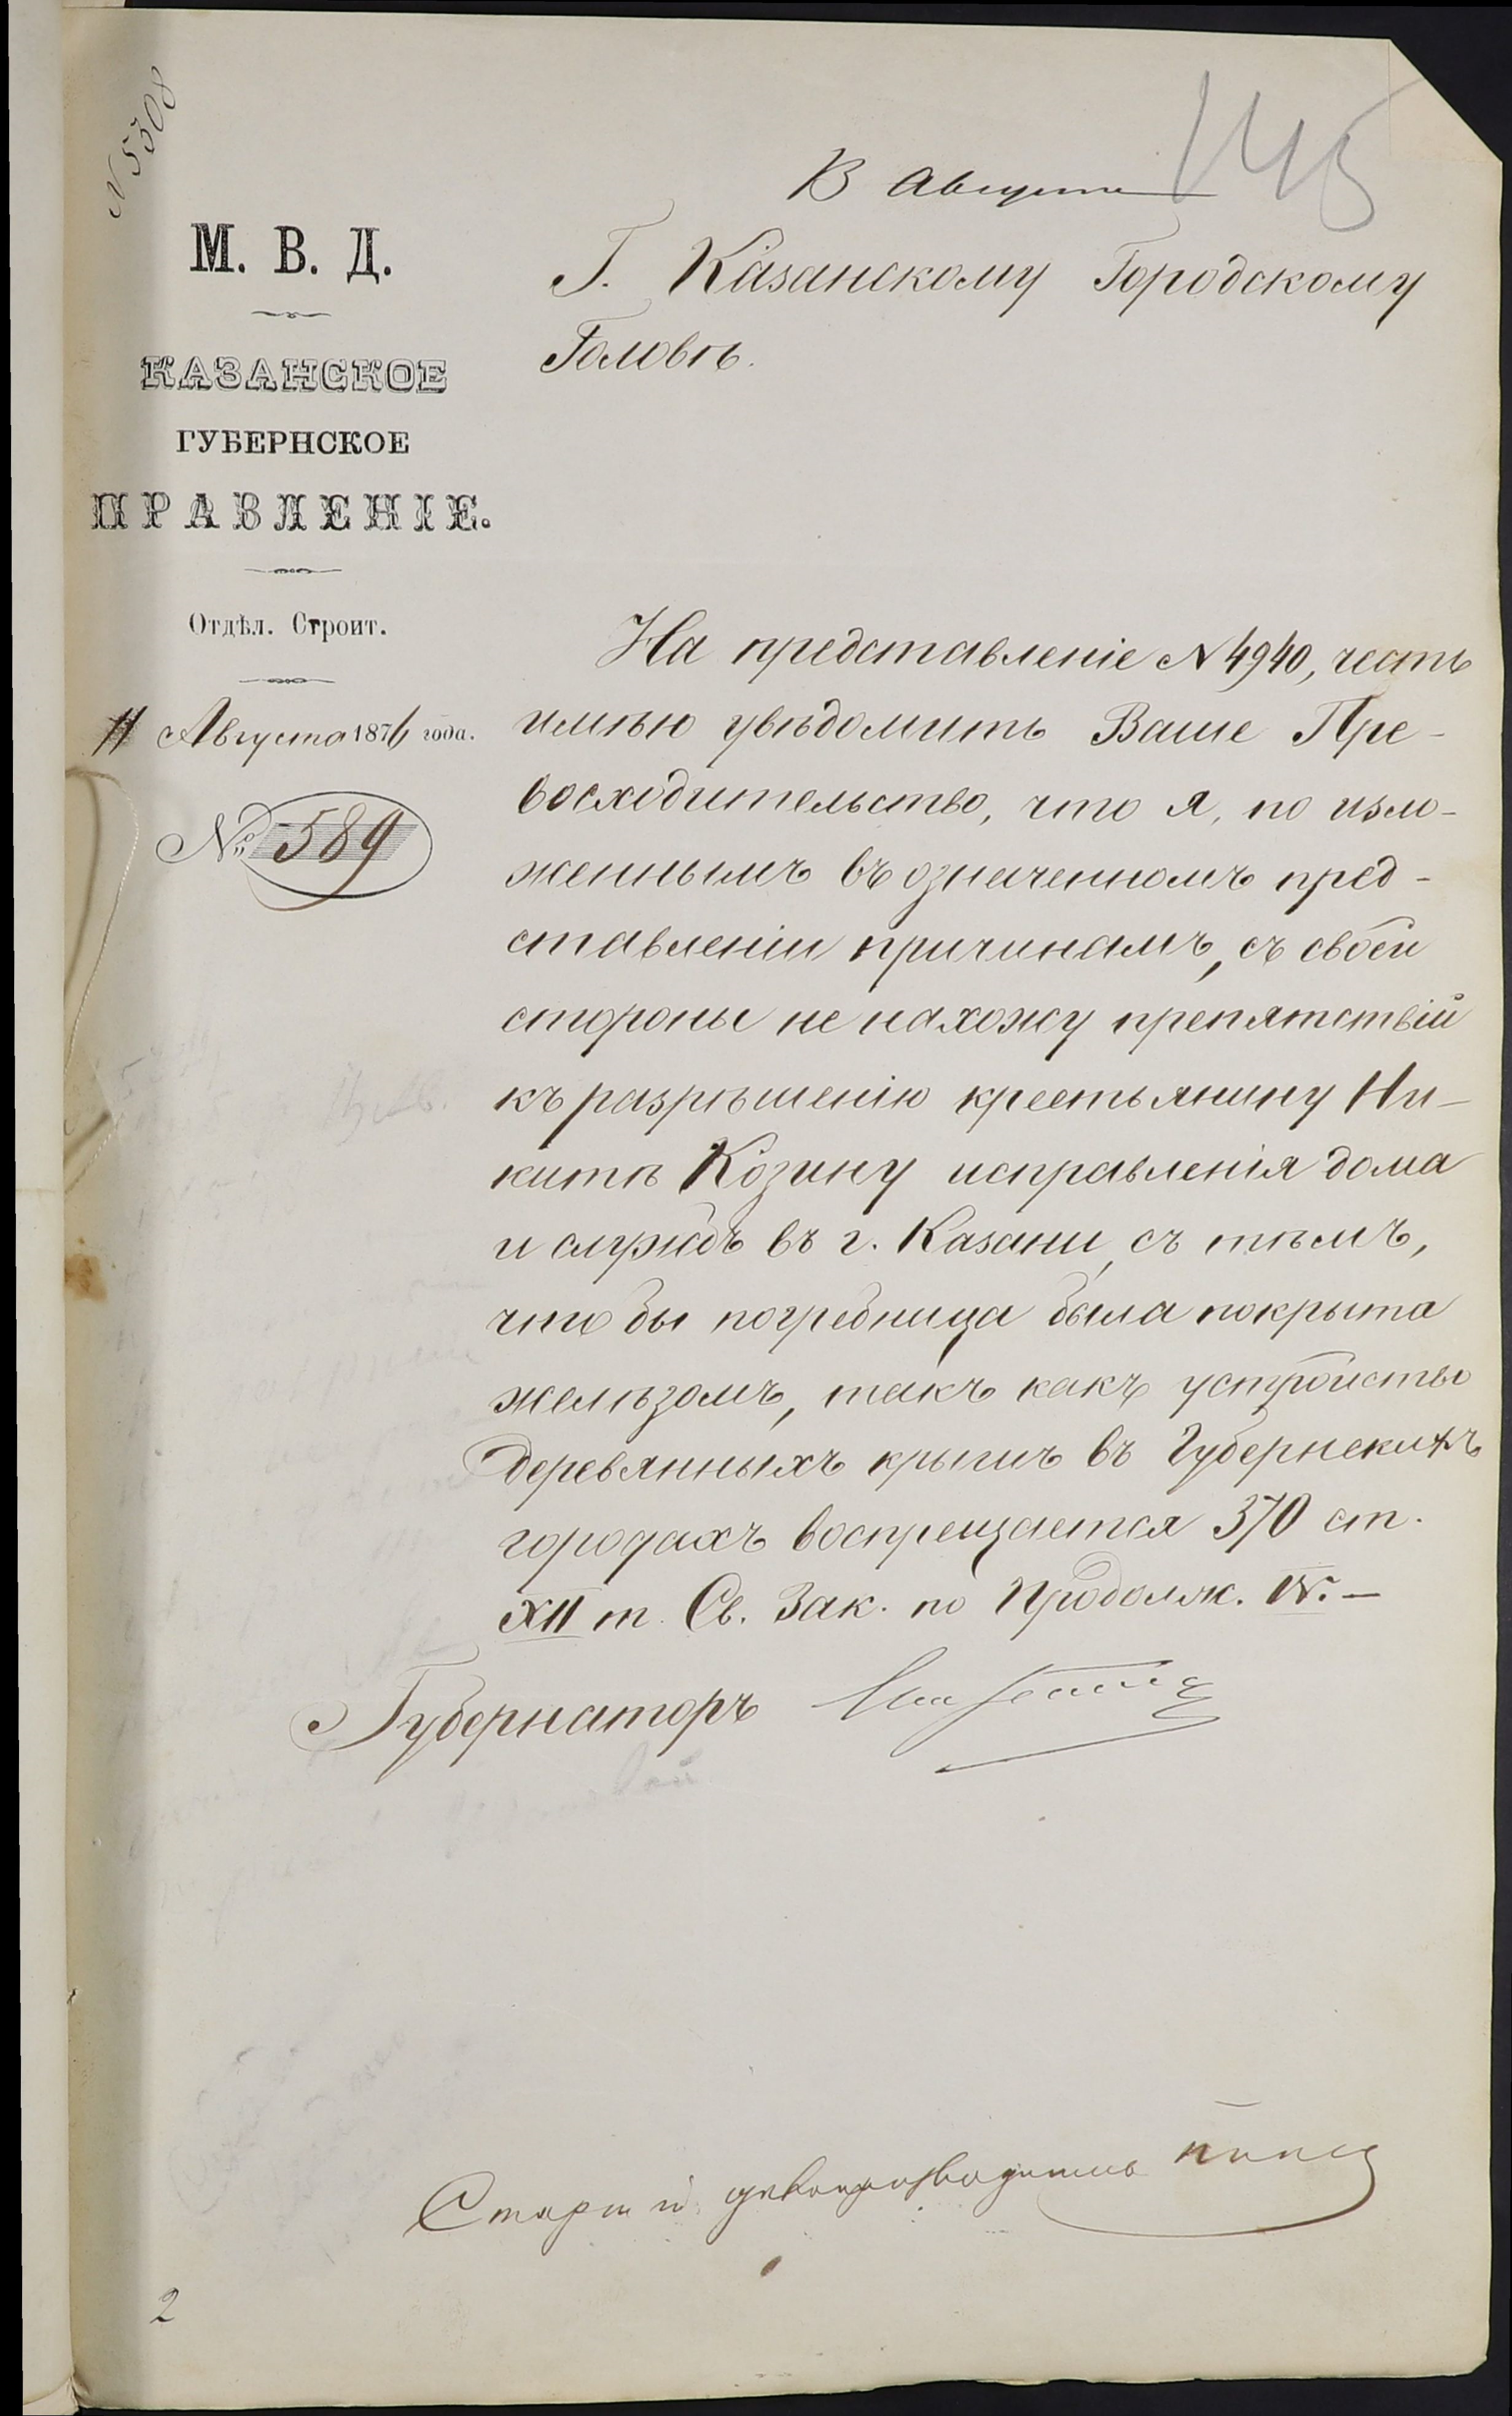 N 5308
В Августа
М. В. Д.
КАЗАНСКОЕ
ГУБЕРНСКОЕ
ПРАВЛЕНІЕ.
Отдѣл. Строит.
11 Августа 1876 года.
№ 589
Г. Казанскому Городскому
Головѣ.
На представленіе N 4940, честь
имѣю увѣдомить Ваше Пре-
восходительство, что я, по изло-
женнымъ въ означенномъ пред-
ставленіи причинамъ, съ своей
стороны не нахожу препятствій
къ разрѣшенію крестьянину Ни-
китѣ Козину исправленія дома
и службъ въ г. Казани, съ тѣмъ,
что бы погребница была покрыта
желѣзомъ, такъ какъ устройство
деревянныхъ крышъ въ Губернскихъ
городахъ воспрещается 370 ст.
XII т. Св. Зак. по Продолж. IV. —
Губернаторъ
Старшій дѣлопроизводитель
2